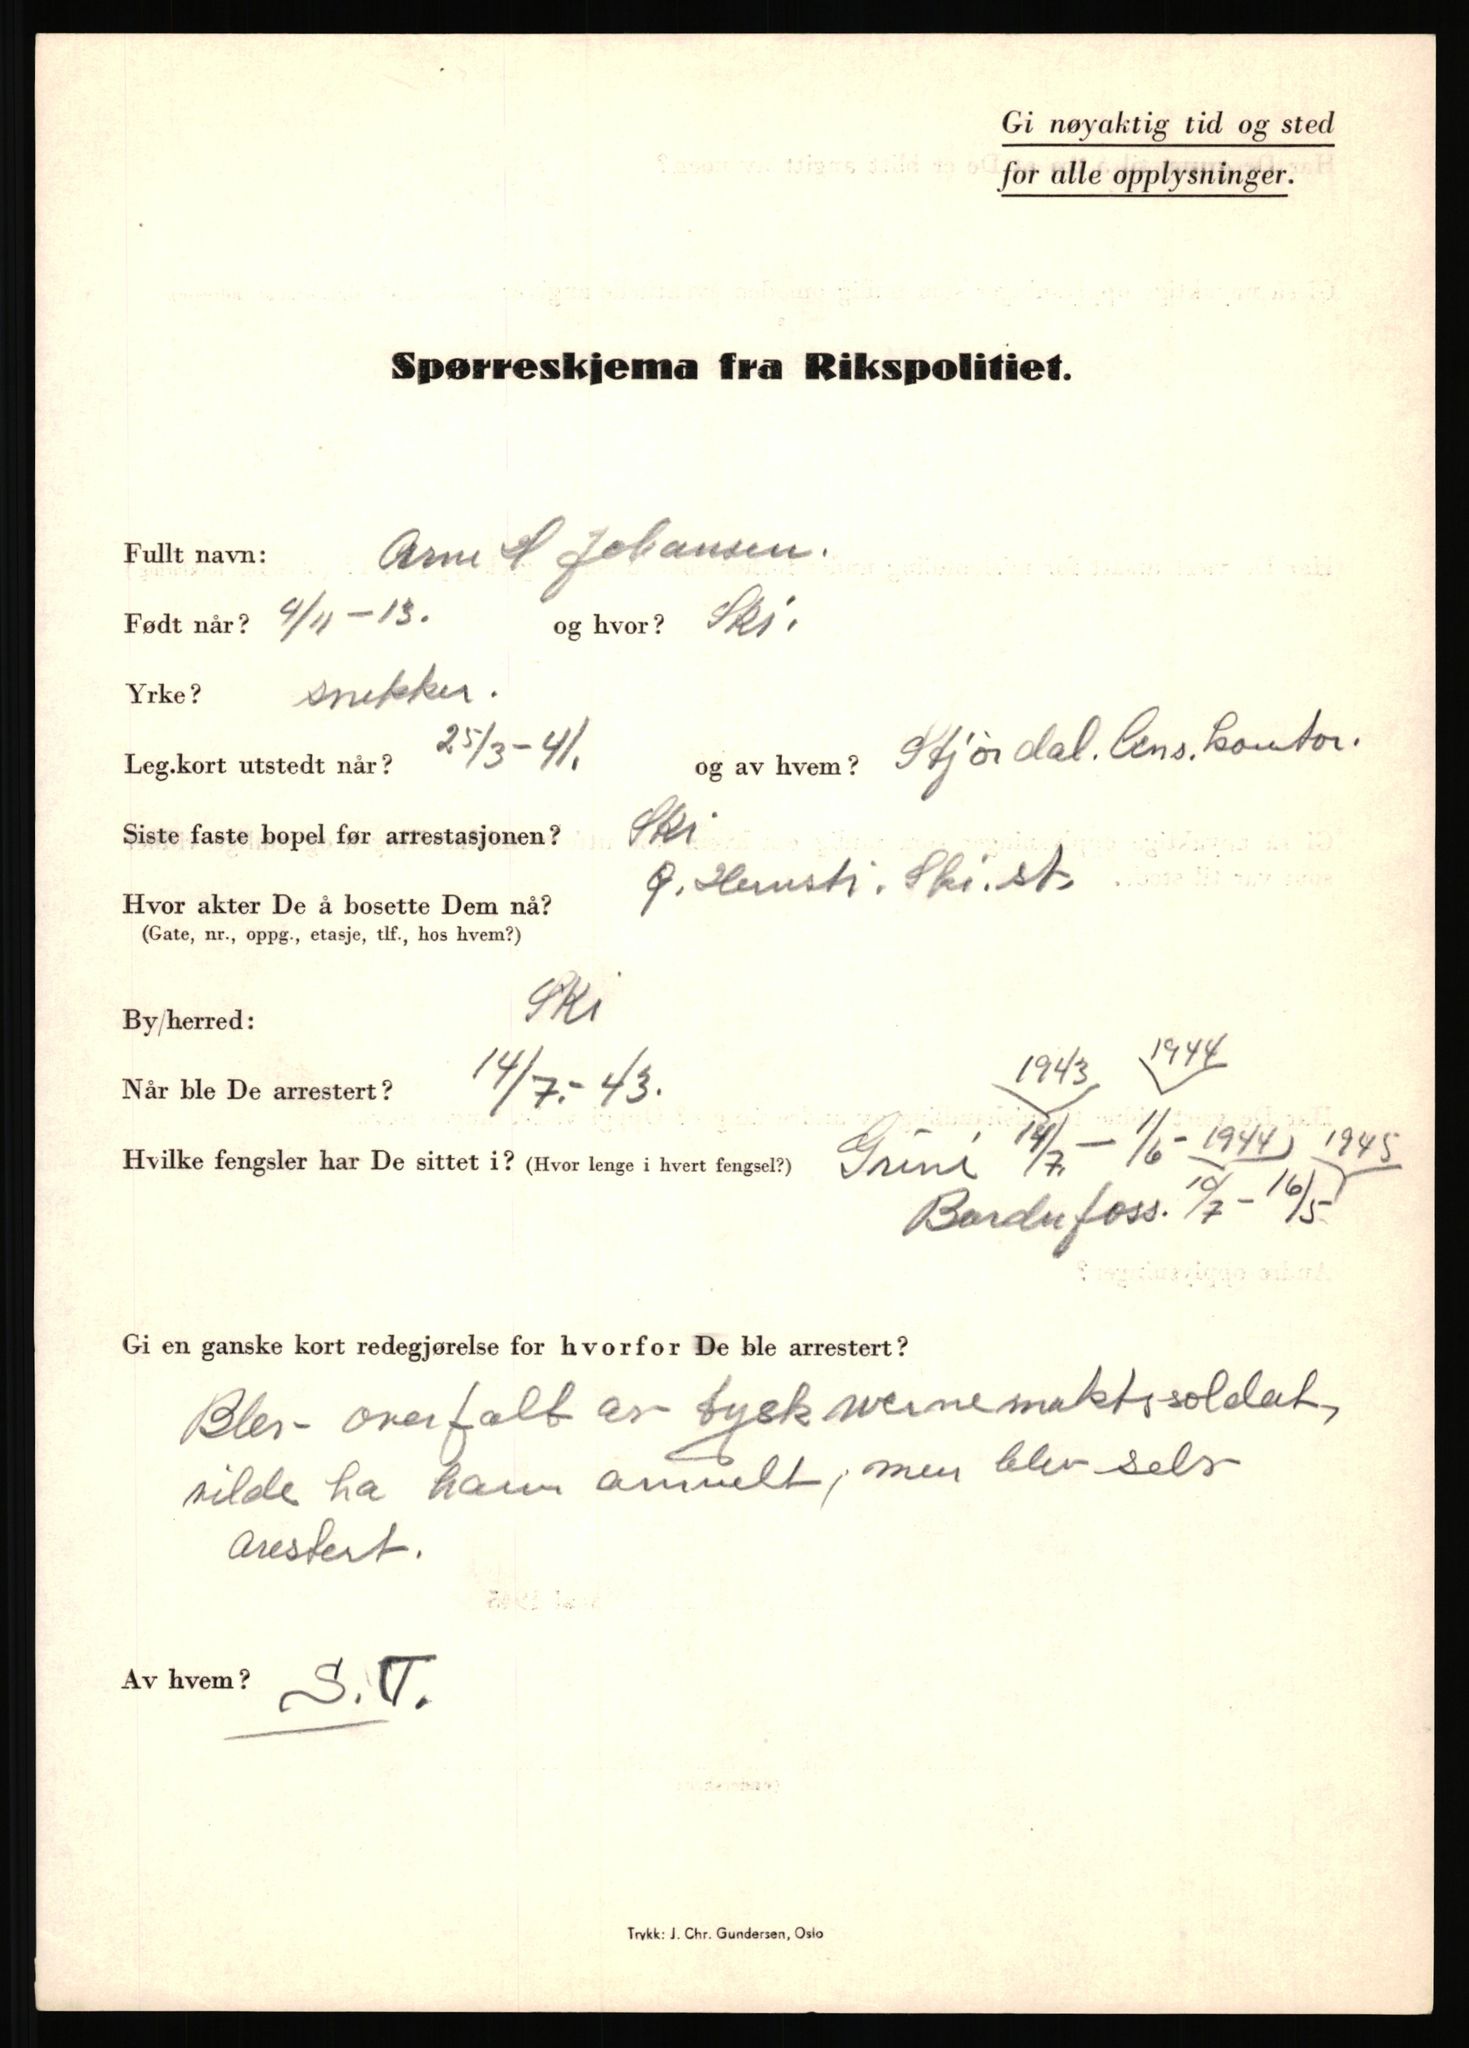 Gi nøyaktig tid og sted
for alle opplysninger.
Spørreskjema fra Rikspolitiet.
Fullt navn: Arne A Johansen.
Født når? 4/11-13. og hvor? Ski.
Yrke? snekker.
Leg.kort utstedt når? 25/3-41. og av hvem? Stjördal. Lens.kontor.
Siste faste bopel før arrestasjonen? Ski
Hvor akter De å bosette Dem nå? Ski.st.
(Gate, nr., oppg., etasje, tlf., hos hvem?)
By/herred: Ski
Når ble De arrestert? 14/7.-43.
1943 1944
Hvilke fengsler har De sittet i? (Hvor lenge i hvert fengsel?) Grini 14/7. - 1/6 - 1944 1945
Bardufoss. 10/7 - 16/5
Gi en ganske kort redegjørelse for hvorfor De ble arrestert?
Blev overfalt av tysk wernemaktssoldat,
vilde ha ham anmelt, men blev selv
arestert.
Av hvem? S.T.
Trykk: J. Chr. Gundersen, Oslo